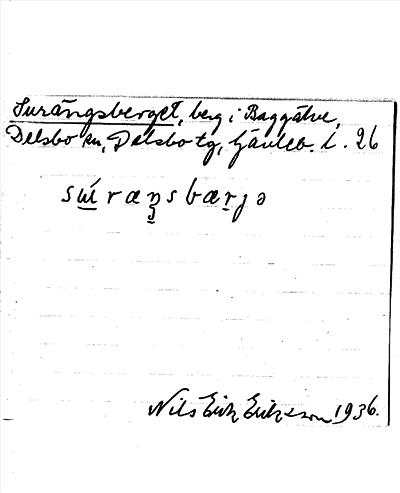 Surängsberget, berg i Baggätve,
Delsbo sn, Delsbo tg, Gävleb. l. 26
sɯ́ræŋsbærjə
Nils Erik Eriksson 1936.